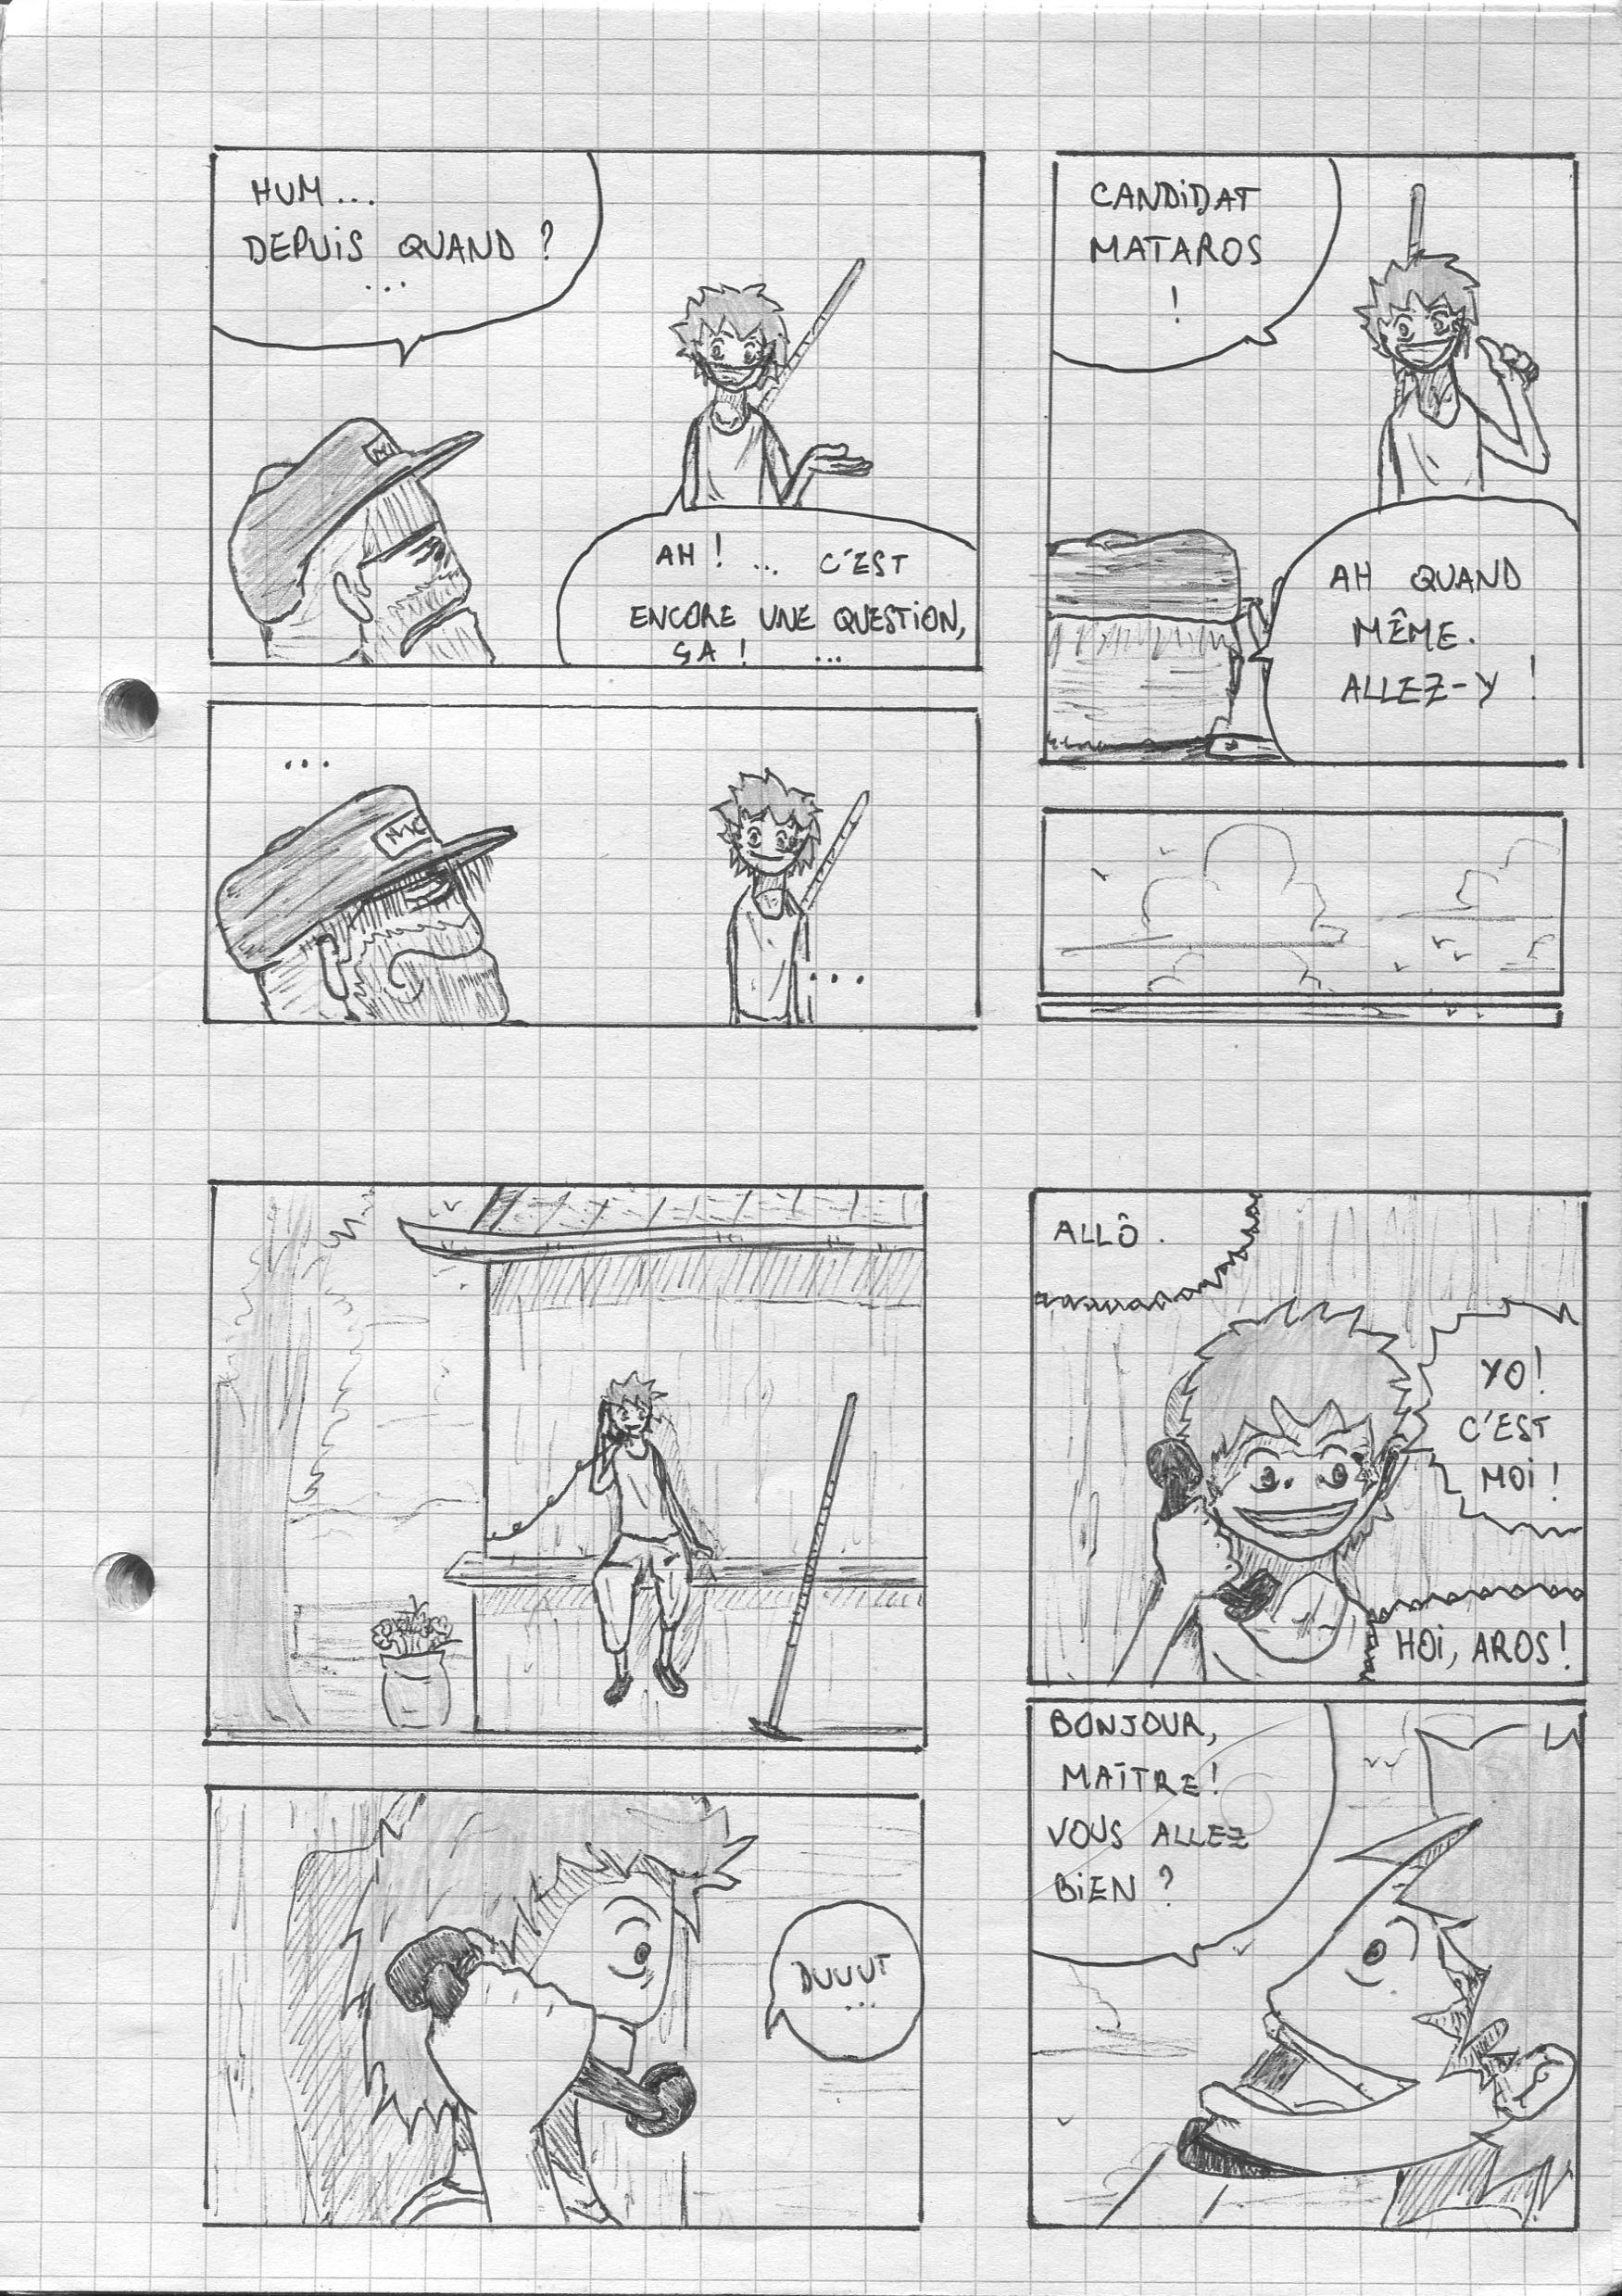 HUM...
DEPUIS QUAND ?
...
AH ! ... C'EST
ENCORE UNE QUESTION,
ÇA ! ...
...
...
CANDIDAT
MATAROS
!
AH QUAND
MÊME.
ALLEZ-Y !
DUUUT
...
ALLÔ.
YO !
C'EST
MOI !
HOI, AROS !
BONJOUR,
MAÎTRE !
VOUS ALLEZ
BIEN ?